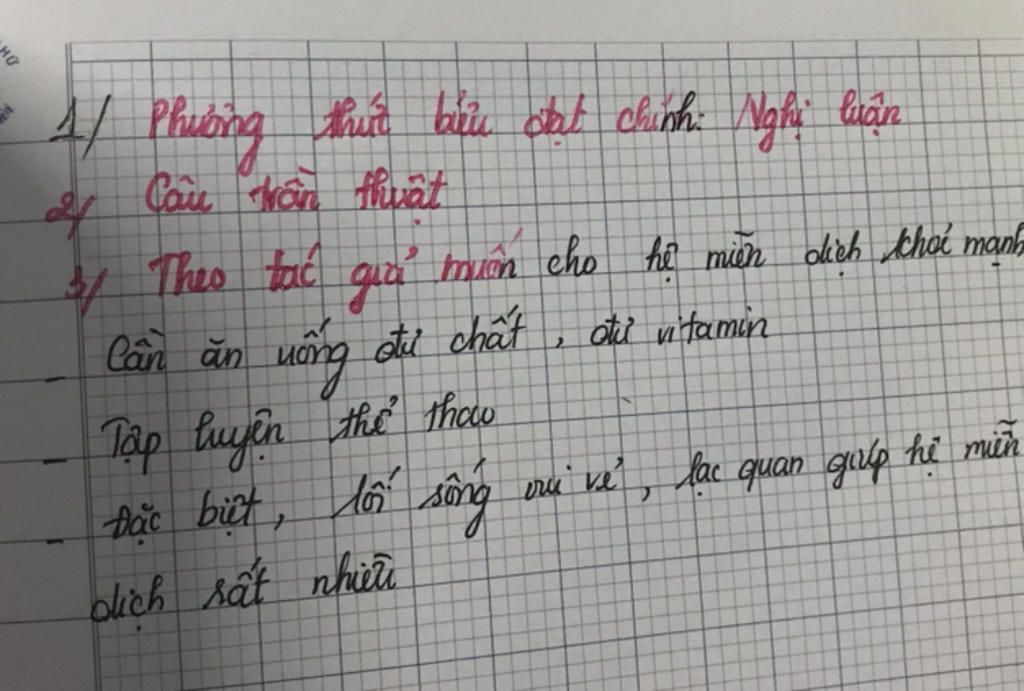 1/ Phương thức biểu đạt chính: Nghị luận
2/ Câu trần thuật
3/ Theo tác giả muốn cho hệ miễn dịch khoẻ mạnh
- Cần ăn uống đủ chất, đủ vitamin
- Tập luyện thể thao
- Đặc biệt, lối sống vui vẻ, lạc quan giúp hệ miễn
dịch rất nhiều